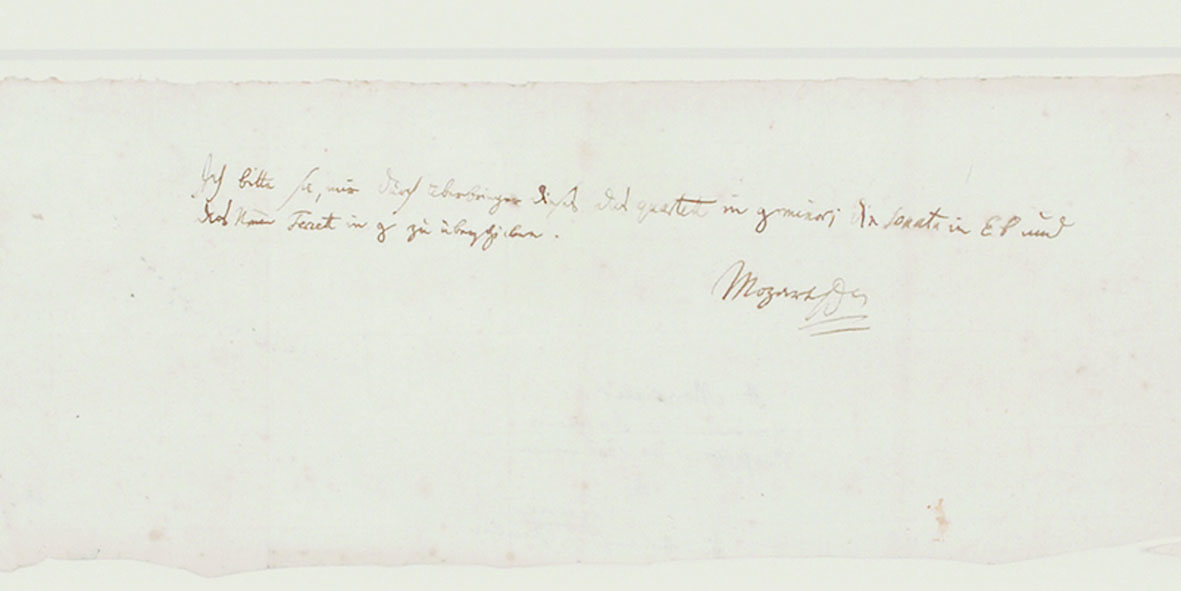 Ich bitte sie, mir durch überbringer dieses das quartett in g minor; die Sonata in Eb und
das Neue Terzet in g zu überschicken.
Mozart